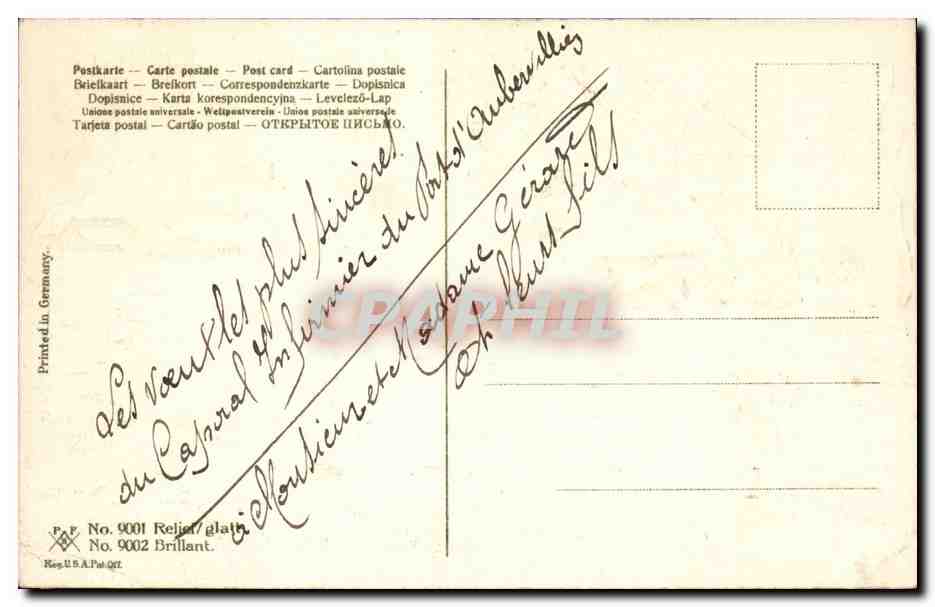 Postkarte — Carte postale — Post card — Cartolina postale
Briefkaart — Brefkort — Correspondenzkarte — Dopisnica
Dopisnice — Karta korespondencyjna — Levelező-Lap
Unione postale universale - Weltpostverein - Union postale universelle
Tarjeta postal — Cartão postal — ОТКРЫТОЕ ПИСЬМО.
Les vœux les plus sincères
du Caporal Infirmier du Fort d'Aubervilliers
à Monsieur et Madame Gérard
et leurs fils
Printed in Germany.
CPAPHIL
P F B
No. 9001 Relief/glatt.
No. 9002 Brillant.
Reg. U.S.A. Pat. Off.